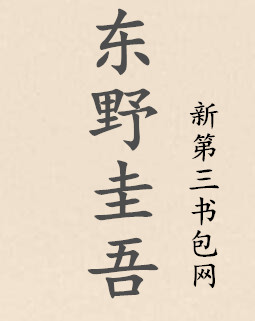 东野圭吾
新第三书包网